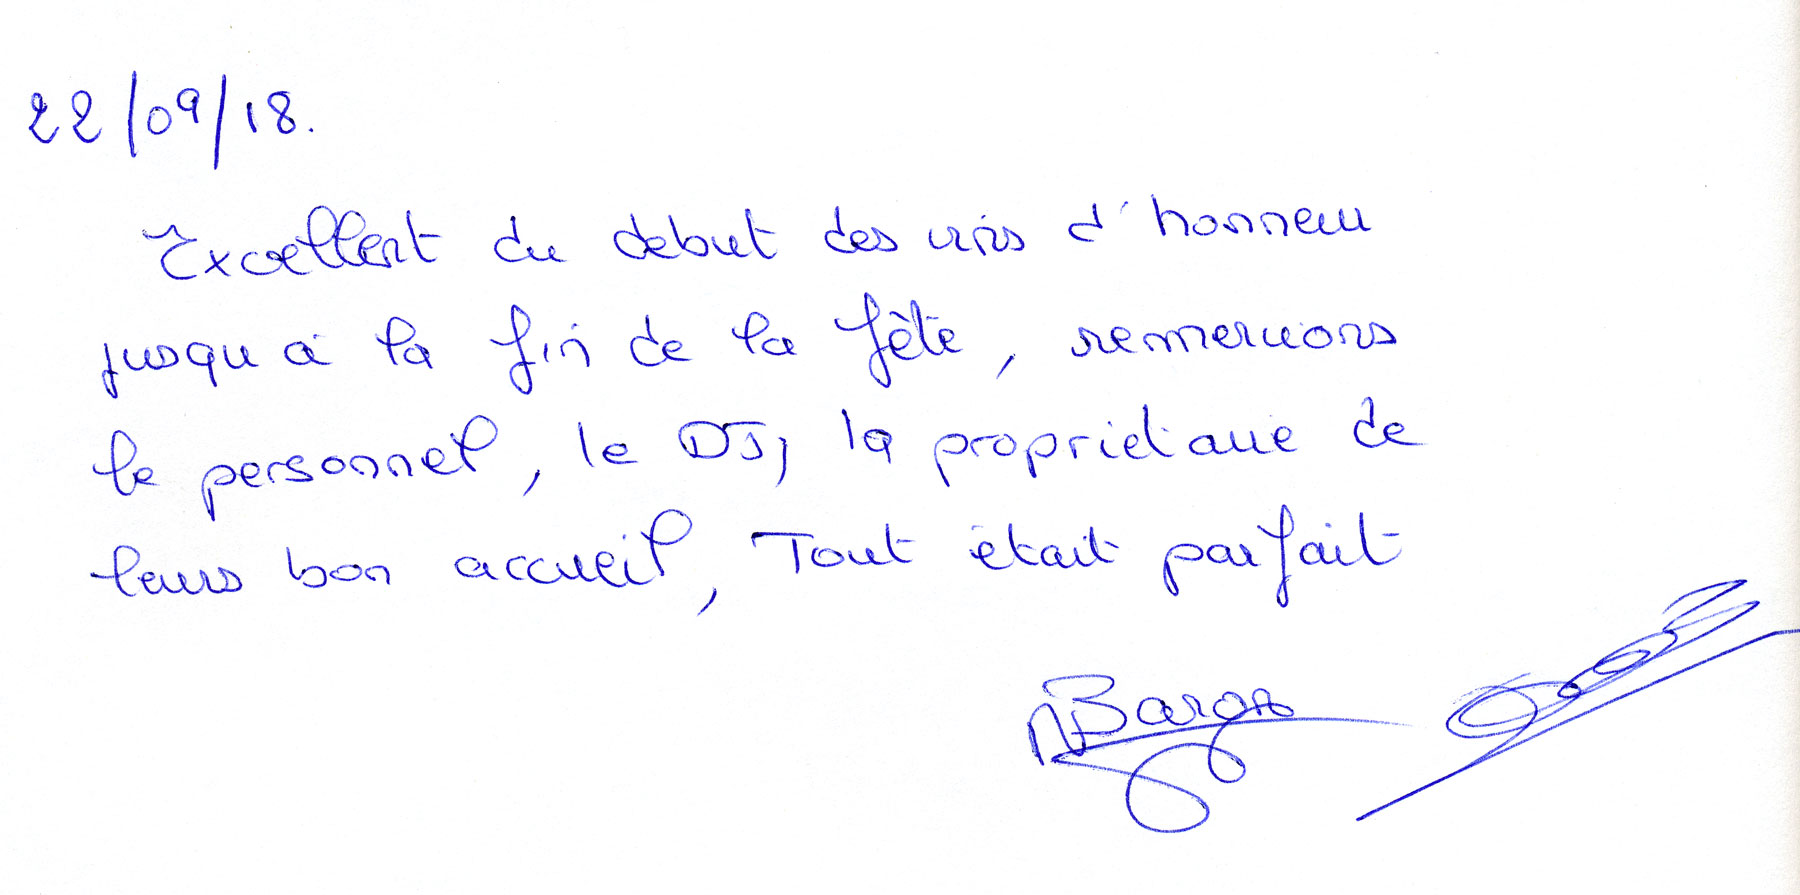 22/09/18.
Excellent du debut des vins d'honneur
jusqu'à la fin de la fête, remercions
le personnel, le DJ, la proprietaire de
leurs bon accueil, Tout était parfait